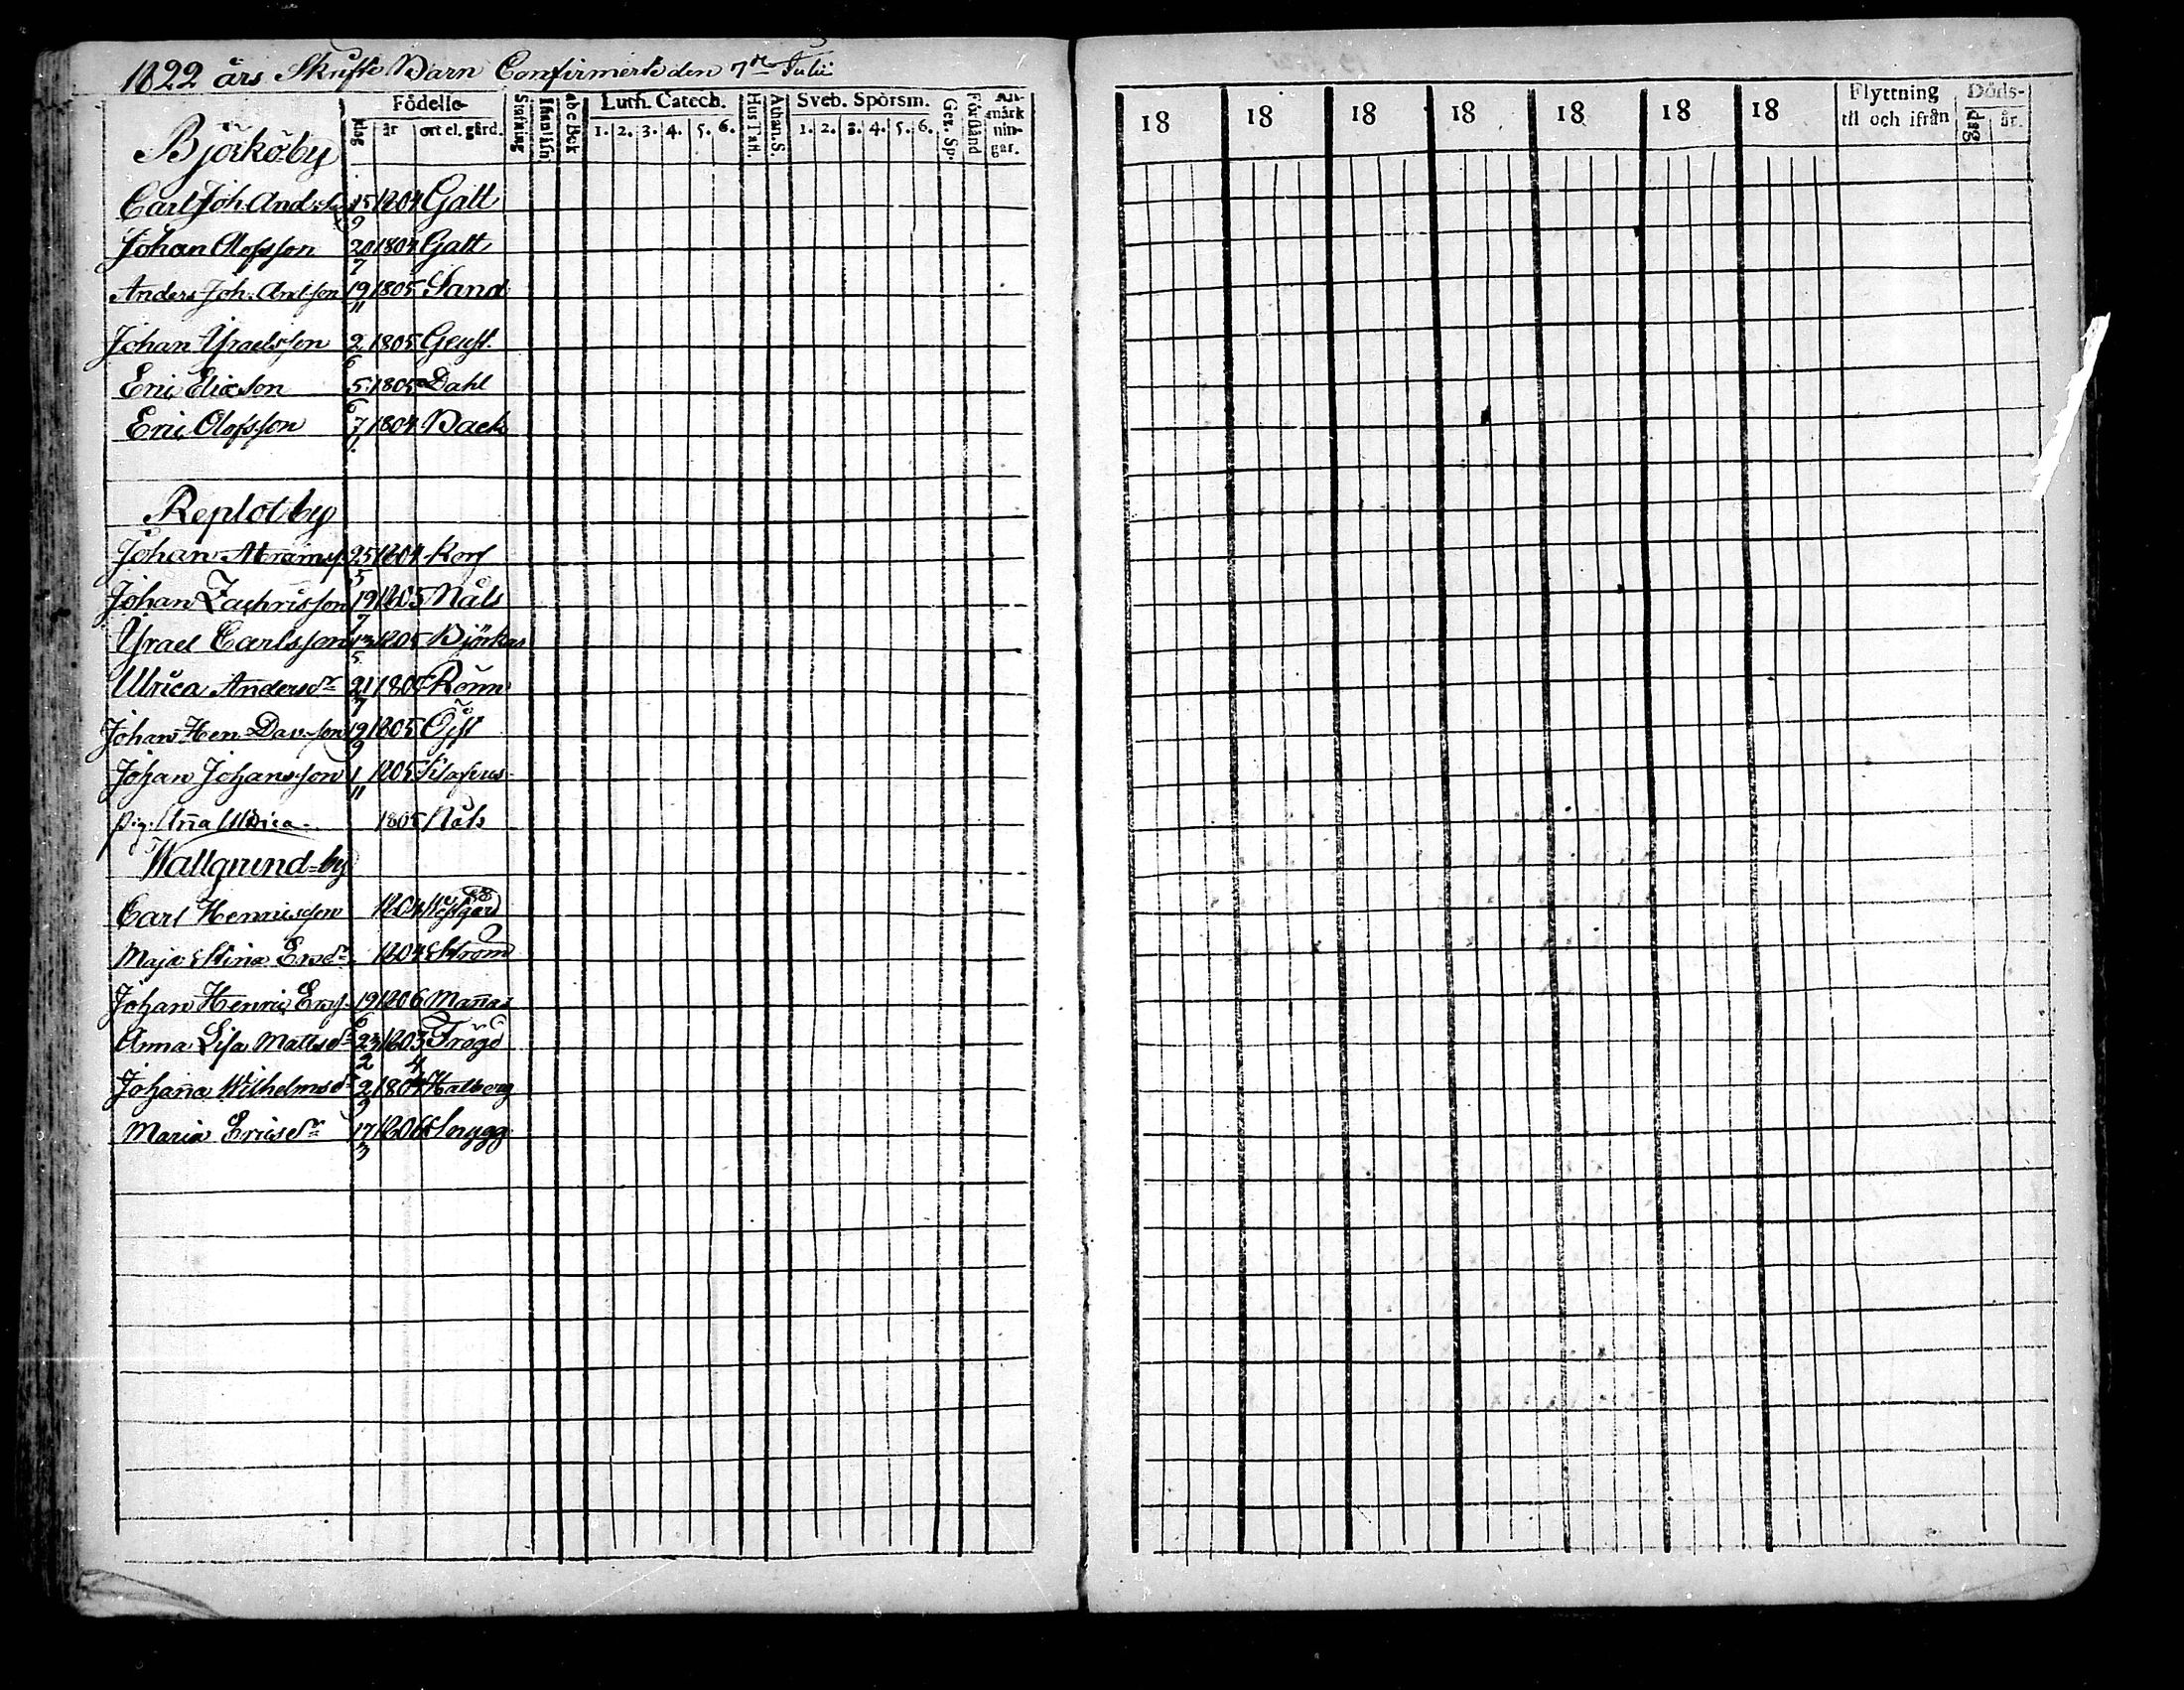 1822 års Skrifte Barn Confirmerte den 7de Julii
Födelse-
dag år ort el. gård.
Stafning Innanläsn abc Bok
Luth. Catech.
1. 2. 3. 4. 5. 6.
Hus Tafl. Athan. S.
Sveb. Spörsm.
1. 2. 3. 4. 5. 6.
Gez. Sp. Förstånd
An-
märk
nin-
gar.
Björköby
Carl Joh. And.son 15/9 1804 Galt
Johan Olofsson 20/7 1804 Galt
Anders Joh. Andsson 19/11 1805 Sand
Johan Ysraelsson 2/6 1805 Geust
Eric Ericson 5/6 1805 Dahl
Eric Olofsson 7/1 1804 Back
Replot by
Johan Abramss. 25/5 1804 Kors
Johan Zachrisson 19/7 1805 Nåls
Ysrael Carlsson 13/5 1805 Björkas
Ulrica Andersdr 21/7 1805 Rönn
Johan Hen. Dav.son 19/9 1805 Öjst
Johan Johansson 1/11 1805
pig. Anna Ulrica 1805 Nåls
Wallgrund-by
Carl Henricsson 1804 Westgård
Maja Stina Ersdr 1804 Ström
Johan Henric Erss. 19/6 1806 Mannas
Anna Lisa Mattsdr 23/2 1803 Trögd
Johanna Wilhelmsdr 2/9 1804 Halberg
Maria Ericsdr 17/3 1806 Snygg
18 18 18 18 18 18 18
Flyttning
til och ifrån
Döds-
dag år.